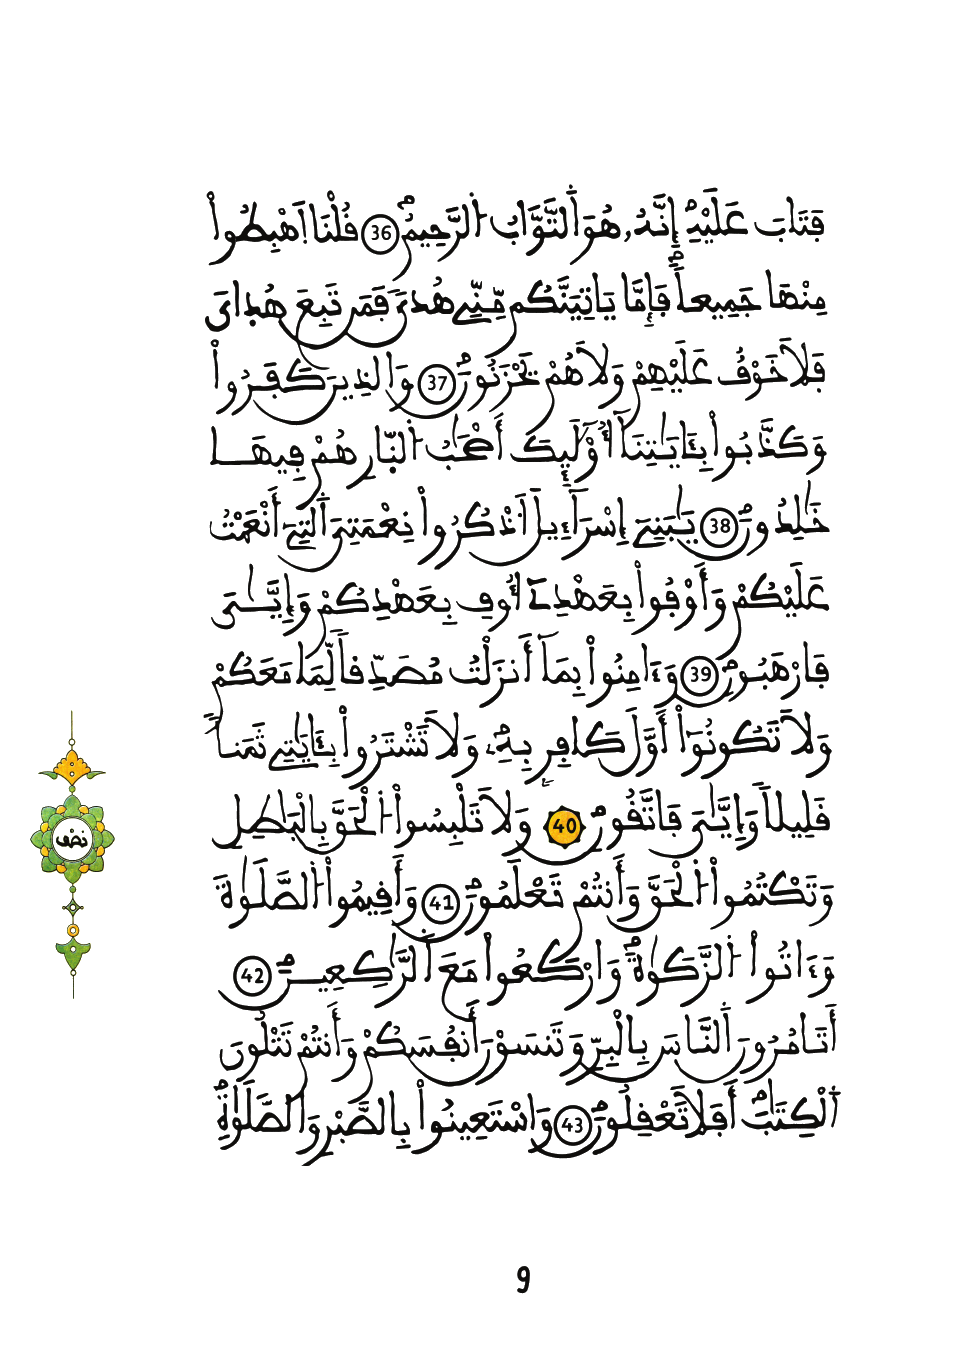 فَتَابَ عَلَيْهِۖ إِنَّهُۥ هُوَ اَ۬لتَّوَّابُ اُ۬لرَّحِيمُۖ 36 قُلْنَا اَ۪هْبِطُواْ
مِنْهَا جَمِيعاٗۖ فَإِمَّا يَاتِيَنَّكُم مِّنِّے هُدٗي فَمَن تَبِعَ هُد۪ايَ
فَلَا خَوْفٌ عَلَيْهِمْ وَلَا هُمْ يَحْزَنُونَۖ 37 وَالذِينَ كَفَرُواْ
وَكَذَّبُواْ بِـَٔايَٰتِنَآ أُوْلَٰٓئِكَ أَصْحَٰبُ اُ۬لنّ۪ارِ هُمْ فِيهَا
خَٰلِدُونَۖ 38 يَٰبَنِےٓ إِسْرَآءِيلَ اَ۟ذْكُرُواْ نِعْمَتِيَ اَ۬لتِےٓ أَنْعَمْتُ
عَلَيْكُمْ وَأَوْفُواْ بِعَهْدِےٓ أُوفِ بِعَهْدِكُمْ وَإِيَّٰيَ
فَارْهَبُونِۖ 39 وَءَامِنُواْ بِمَآ أَنزَلْتُ مُصَدِّقاٗ لِّمَا مَعَكُمْ
وَلَا تَكُونُوٓاْ أَوَّلَ كَافِرِۢ بِهِۦۖ وَلَا تَشْتَرُواْ بِـَٔايَٰتِے ثَمَناٗ
قَلِيلاٗ وَإِيَّٰيَ فَاتَّقُونِۖ 40 وَلَا تَلْبِسُواْ اُ۬لْحَقَّ بِالْبَٰطِلِ
وَتَكْتُمُواْ اُ۬لْحَقَّ وَأَنتُمْ تَعْلَمُونَۖ 41 وَأَقِيمُواْ اُ۬لصَّلَوٰةَ
وَءَاتُواْ اُ۬لزَّكَوٰةَۖ وَارْكَعُواْ مَعَ اَ۬لرَّٰكِعِينَۖ 42
أَتَامُرُونَ اَ۬لنَّاسَ بِالْبِرِّ وَتَنسَوْنَ أَنفُسَكُمْ وَأَنتُمْ تَتْلُونَ
اَ۬لْكِتَٰبَۖ أَفَلَا تَعْقِلُونَۖ 43 وَاسْتَعِينُواْ بِالصَّبْرِ وَالصَّلَوٰةِۖ
نصف
9